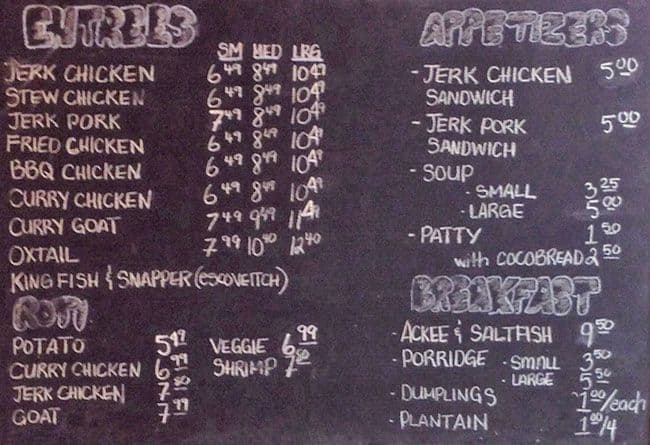 ENTREES
SM MED LRG
JERK CHICKEN 6 49 8 49 10 49
STEW CHICKEN 6 49 8 49 10 49
JERK PORK 7 49 8 49 10 49
FRIED CHICKEN 6 49 8 49 10 49
BBQ CHICKEN 6 49 8 49 10 49
CURRY CHICKEN 6 49 8 49 10 49
CURRY GOAT 7 49 9 49 11 49
OXTAIL 7 99 10 40 12 40
KING FISH & SNAPPER (escoveitch)
ROTI
POTATO 5 49
CURRY CHICKEN 6 99
JERK CHICKEN 7 50
GOAT 7 99
VEGGIE 6 99
SHRIMP 7 50
APPETIZERS
- JERK CHICKEN 5 00
SANDWICH
- JERK PORK 5 00
SANDWICH
- SOUP
- SMALL 3 25
- LARGE 5 00
- PATTY 1 50
with COCOBREAD 2 50
BREAKFAST
- ACKEE & SALTFISH 9 50
- PORRIDGE - SMALL 3 50
- LARGE 5 50
- DUMPLINGS 1 00/each
- PLANTAIN 1 00/4